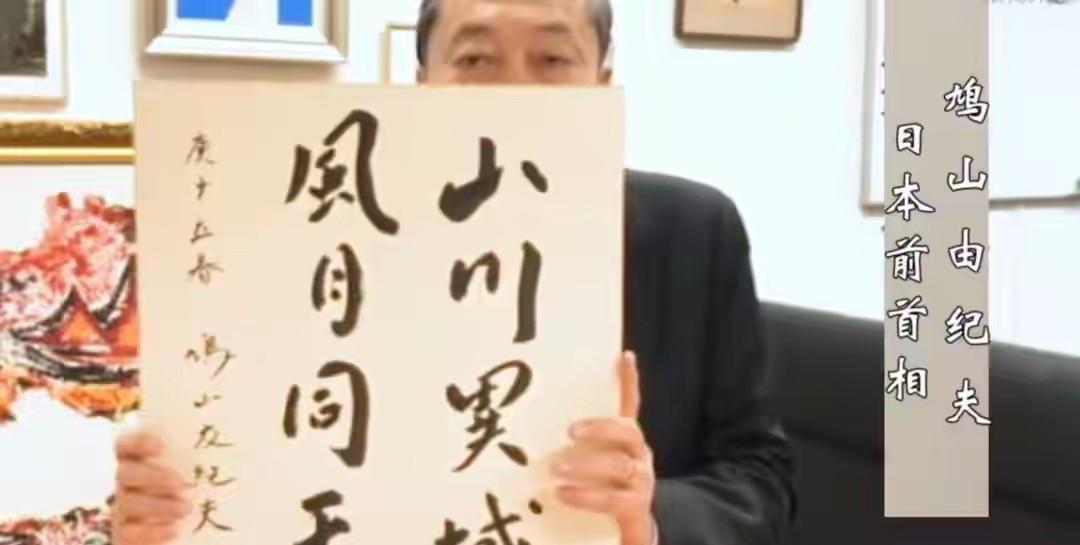 鸠山由纪夫
日本前首相
山川異域
風月同天
庚子立春 鳩山友紀夫